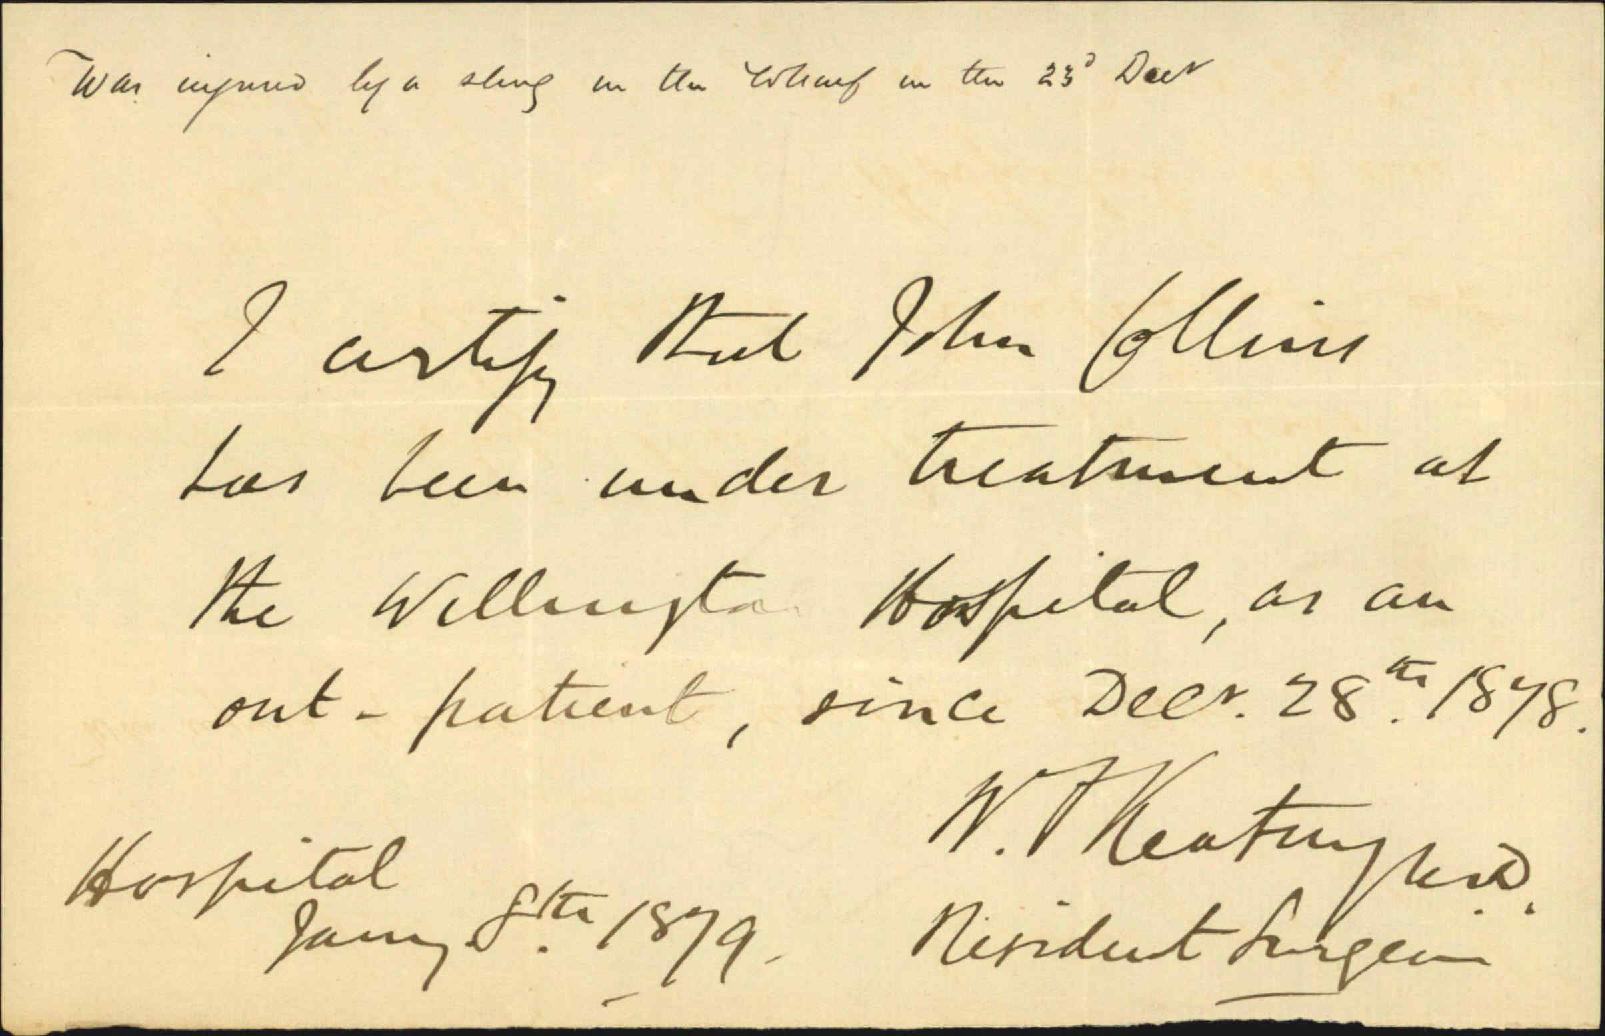 Was injured by a sling on the Wharf on the 23d Decr
I certify that John Collins
has been under treatment at
the Wellington Hospital, as an
out-patient, since Decr. 28th. 1878.
W. F Keating M.D.
Hospital
Jany 8th. 1879.
Resident Surgeon